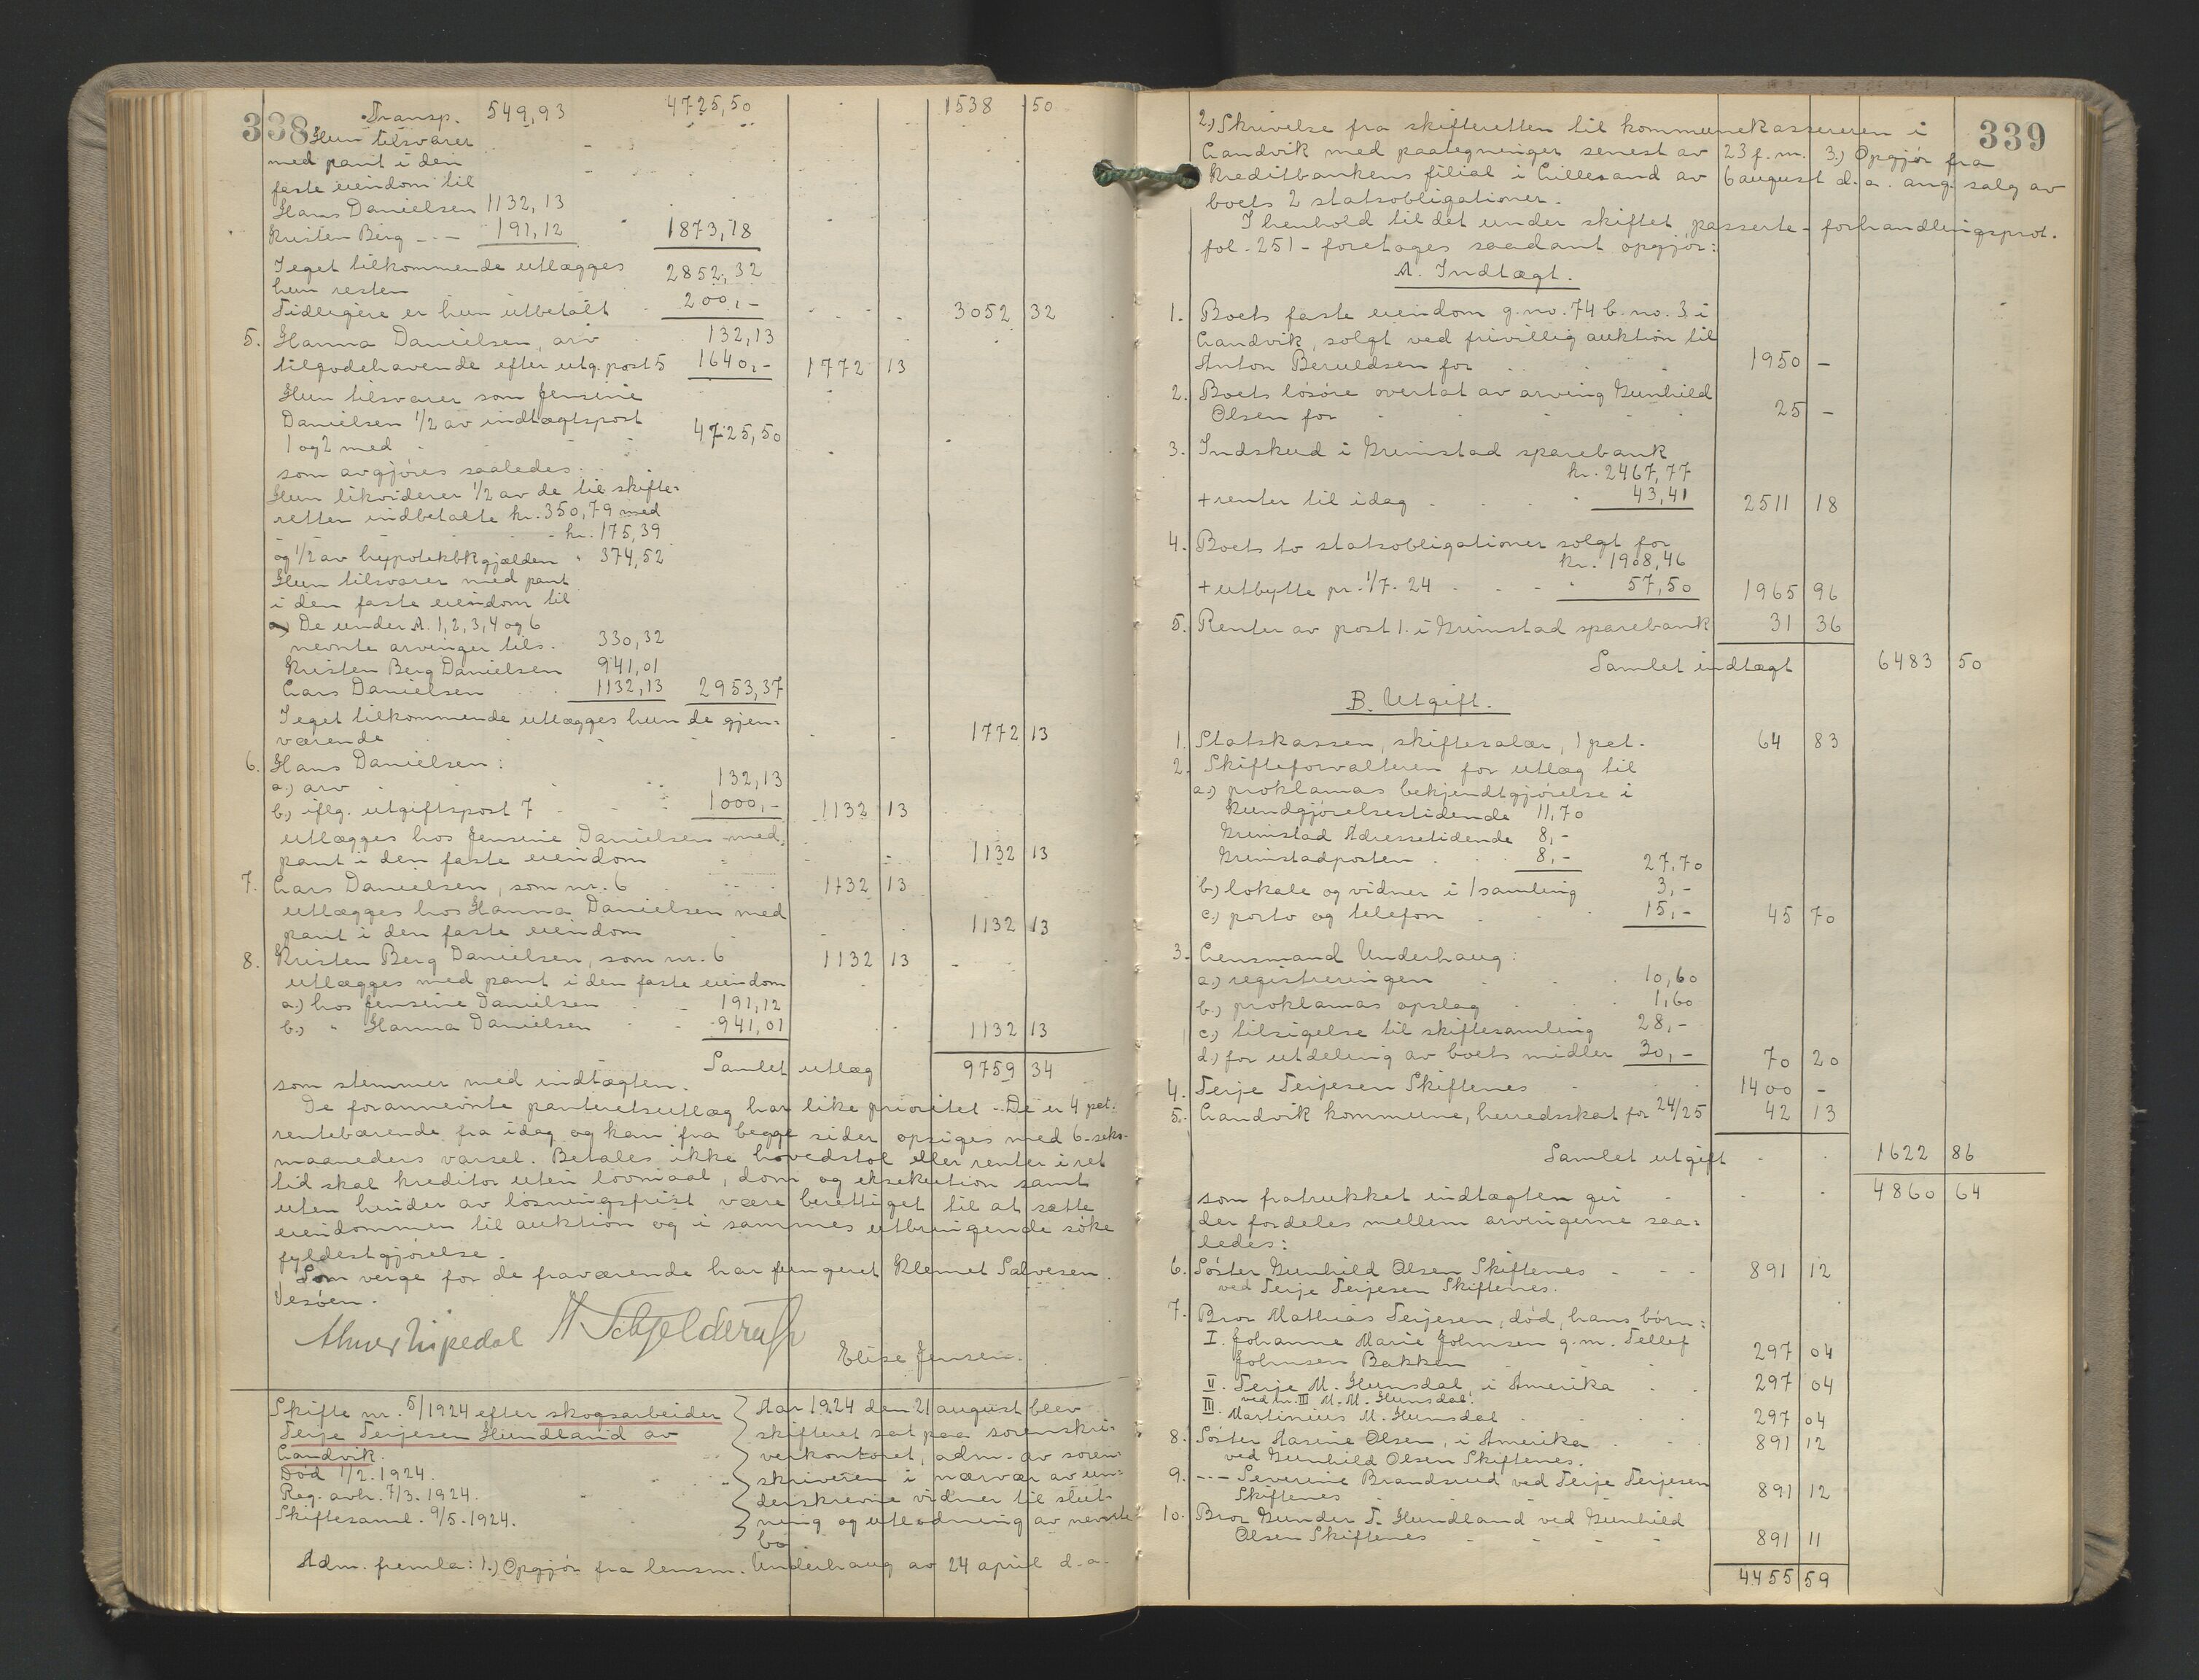 338
Transp. 549,93 4725,50 1538 50
Hun tilsvarer
med pant i den
faste eiendom til
Hans Danielsen 1132,13
Kristen Berg -"- 191,12 1873,18
I eget tilkommende utlægges
hun resten 2852,32
Tidligere er hun utbetalt 200,- 3052 32
5. Hanna Danielsen, arv 132,13
tilgodehavende efter utg. post 5 1640,- 1772 13
Hun tilsvarer som Jensine
Danielsen 1/2 av indtægtspost
1 og 2 med 4725,50
som avgjøres saaledes.
Hun likviderer 1/2 av de til skifte-
retten indbetalte kr. 350,79 med
kr. 175,39
og 1/2 av hypotekbkgjælden " 374,52
Hun tilsvarer med pant
i den faste eiendom til
a) De under A. 1, 2, 3, 4 og 6
nevnte arvinger tils. 330,32
Kristen Berg Danielsen 941,01
Lars Danielsen 1132,13 2953,37
I eget tilkommende utlægges hun de gjen-
værende 1772 13
6. Hans Danielsen:
a.) arv 132,13
b.) iflg. utgiftspost 7 1000,- 1132 13
utlægges hos Jensine Danielsen med
pant i den faste eiendom 1132 13
7. Lars Danielsen, som nr. 6 1132 13
utlægges hos Hanna Danielsen med
pant i den faste eiendom 1132 13
8. Kristen Berg Danielsen, som nr. 6 1132 13
utlægges med pant i den faste eiendom
a.) hos Jensine Danielsen 191,12
b.) " Hanna Danielsen 941,01 1132 13
Samlet utlæg 9759 34
som stemmer med indtægten.
De forannevnte panteretsutlæg har like prioritet - De er 4 pct.
rentebærende fra idag og kan fra begge sider opsiges med 6 - seks -
maaneders varsel. Betales ikke hovedstol eller renter i ret
tid skal kreditor uten lovmaal, dom og eksekution samt
uten hinder av løsningsfrist være berettiget til at sætte
eiendommen til auktion og i sammes utbringende søke
fyldestgjørelse.
Som verge for de fraværende har fungeret Klemet Salvesen
Vesøen.
H Schjelderup
Elise Jensen.
Skifte nr. 5/1924 efter skogsarbeider
Terje Terjesen Hundland av
Landvik.
Død 1/2. 1924.
Reg. avh. 7/3. 1924.
Skiftesaml. 9/5. 1924.
Aar 1924 den 21 august blev
skifteret sat paa sorenskri-
verkontoret, adm. av soren-
skriveren i nærvær av un-
derskrevne vidner til slut-
ning og utlodning av nevnte
bo
Adm. fremla: 1.) Opgjør fra lensm. Underhaug av 24 april d.a.
339
2.) Skrivelse fra skifteretten til kommunekassereren i
Landvik med paategninger senest av 23 f.m. 3.) Opgjør fra
Kreditbankens filial i Lillesand av 6 august d.a. ang. salg av
boets 2 statsobligationer.
I henhold til det under skiftet passerte - forhandlingsprot.
fol. 251 - foretages saadant opgjør:
A. Indtægt.
1. Boets faste eiendom g.no. 74 b.no. 3 i
Landvik, solgt ved frivillig auktion til
Anton Beruldsen for 1950 -
2. Boets løsøre overtat av arving Gunhild
Olsen for 25 -
3. Indskud i Grimstad sparebank
kr. 2467,77
+ renter til idag 43,41 2511 18
4. Boets to statsobligationer solgt for
kr. 1908,46
+ utbytte pr. 1/7. 24 57,50 1965 96
5. Renter av post 1. i Grimstad sparebank 31 36
Samlet indtægt 6483 50
B. Utgift.
1. Statskassen, skiftesalær, 1 pct. 64 83
2. Skifteforvalteren for utlæg til
a.) proklamas bekjendtgjørelse i
Kundgjørelsestidende 11,70
Grimstad Adressetidende 8,-
Grimstadposten 8,- 27,70
b.) lokale og vidner i 1 samling 3,-
c.) porto og telefon 15,- 45 70
3. Lensmand Underhaug:
a.) registreringen 10,60
b.) proklamas opslag 1,60
c.) tilsigelse til skiftesamling 28,-
d.) for utdeling av boets midler 30,- 70 20
4. Terje Terjesen Skiftenes 1400 -
5. Landvik kommune, herredsskat for 24/25 42 13
Samlet utgift 1622 86
som fratrukket indtægten gir 4860 64
der fordeles mellem arvingerne saa-
ledes:
6. Søster Gunhild Olsen Skiftenes 891 12
ved Terje Terjesen Skiftenes.
7. Bror Mathias Terjesen, død, hans børn:
I. Johanne Marie Johnsen g.m. Tellef
Johnsen Bakken 297 04
II. Terje M. Hunsdal, i Amerika 297 04
ved nr. III M. M. Hunsdal.
III. Martinius M. Hunsdal 297 04
8. Søster Aasine Olsen, i Amerika 891 12
ved Gunhild Olsen Skiftenes.
9. -"- Severine Brandsrud ved Terje Terjesen
Skiftenes 891 12
10. Bror Gunder T. Hundland ved Gunhild
Olsen Skiftenes 891 11
4455 59